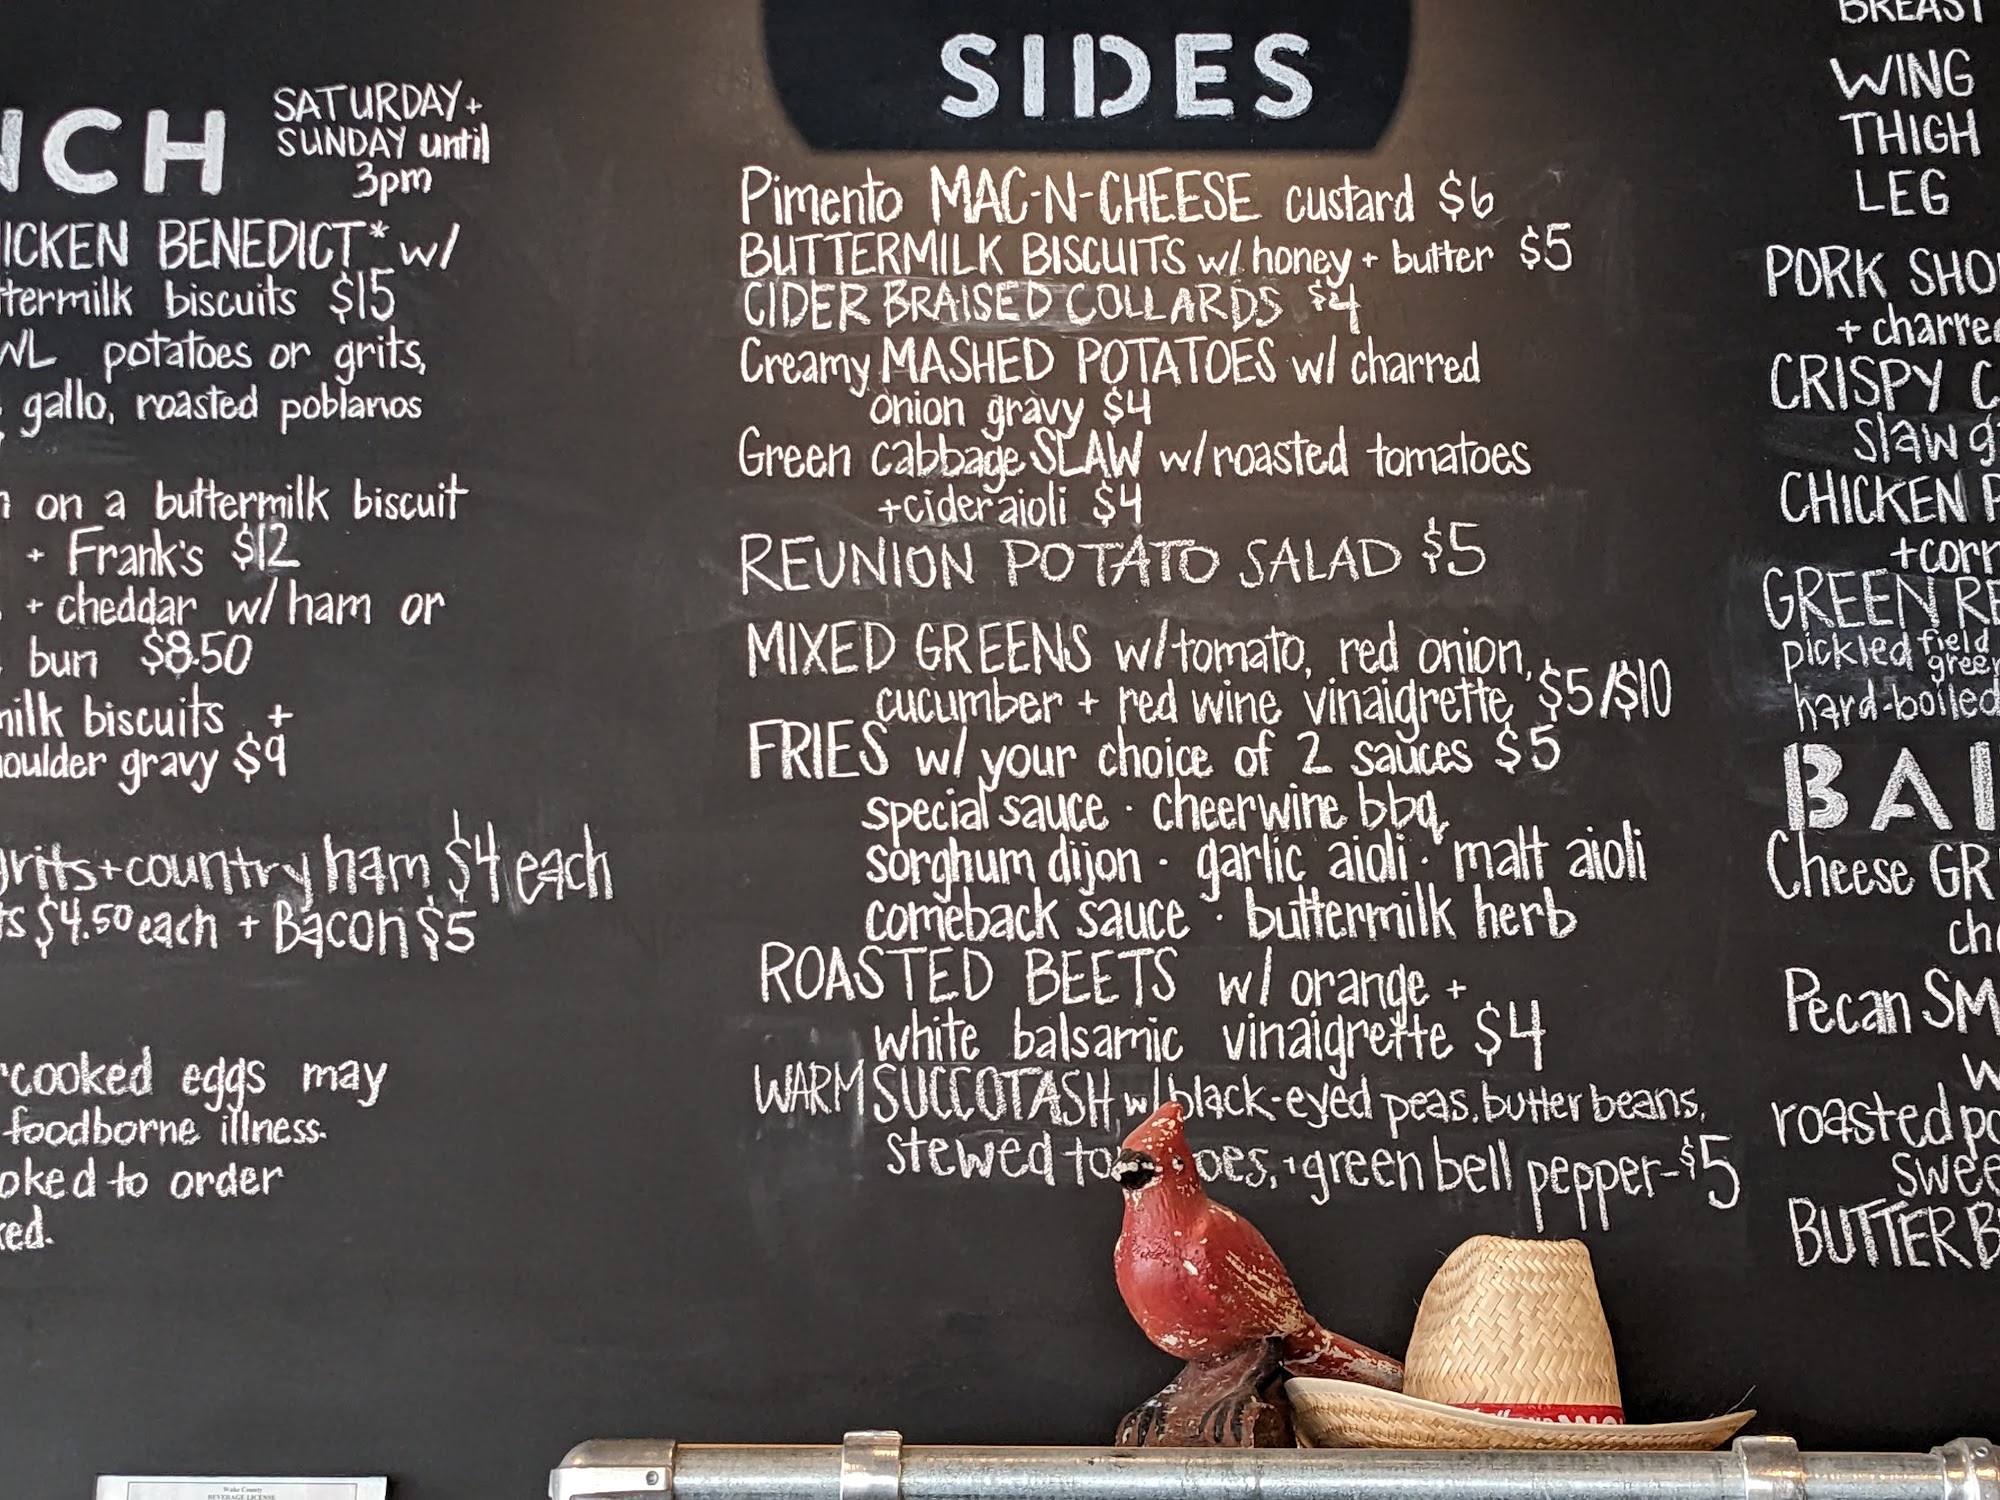 NCH
SATURDAY +
SUNDAY until
3pm
BENEDICT* w/
biscuits $15
potatoes or grits,
gallo, roasted poblanos
on a buttermilk biscuit
+ Frank's $12
+ cheddar w/ ham or
bun $8.50
biscuits +
gravy $9
grits + country ham $4 each
$4.50 each + Bacon $5
cooked eggs may
foodborne illness.
to order
SIDES
Pimento MAC-N-CHEESE custard $6
BUTTERMILK BISCUITS w/ honey + butter $5
CIDER BRAISED COLLARDS $4
Creamy MASHED POTATOES w/ charred
onion gravy $4
Green cabbage SLAW w/ roasted tomatoes
+ cider aioli $4
REUNION POTATO SALAD $5
MIXED GREENS w/ tomato, red onion,
cucumber + red wine vinaigrette $5/$10
FRIES w/ your choice of 2 sauces $5
special sauce · cheerwine bbq
sorghum dijon · garlic aioli · malt aioli
comeback sauce · buttermilk herb
ROASTED BEETS w/ orange +
white balsamic vinaigrette $4
WARM SUCCOTASH w/ black-eyed peas, butter beans,
stewed to oes, + green bell pepper - $5
BREAST
WING
THIGH
LEG
PORK SHO
+ charred
CRISPY C
slaw g
CHICKEN P
+ corn
GREEN RE
pickled field
green
hard-boiled
BAI
Cheese GR
ch
Pecan SM
w
roasted po
swee
BUTTER B
Wake County
BEVERAGE LICENSE